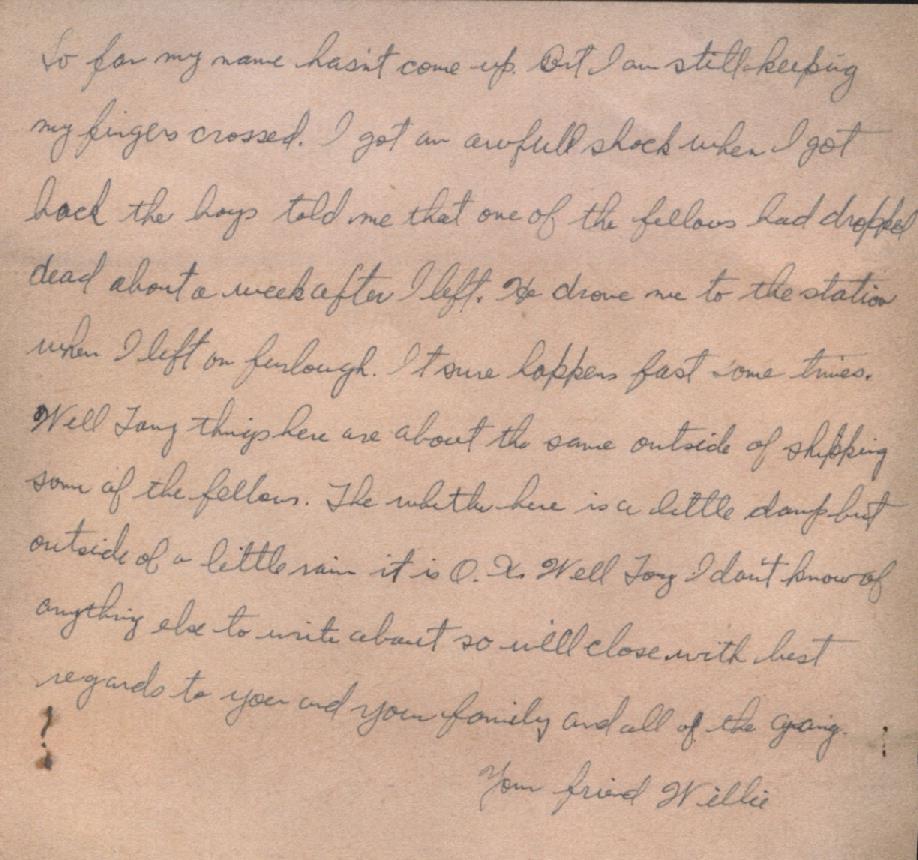 So far my name hasn't come up. But I am still keeping
my fingers crossed. I got an awfull shock when I got
back the boys told me that one of the fellows had dropped
dead about a week after I left. He drove me to the station
when I left on furlough. It sure happens fast some times.
Well Tony things here are about the same outside of shipping
some of the fellows. The whether here is a little damp but
outside of a little rain it is O.K. Well Tony I don't know of
anything else to write about so will close with best
regards to you and your family and all of the gang.
Your friend Willie